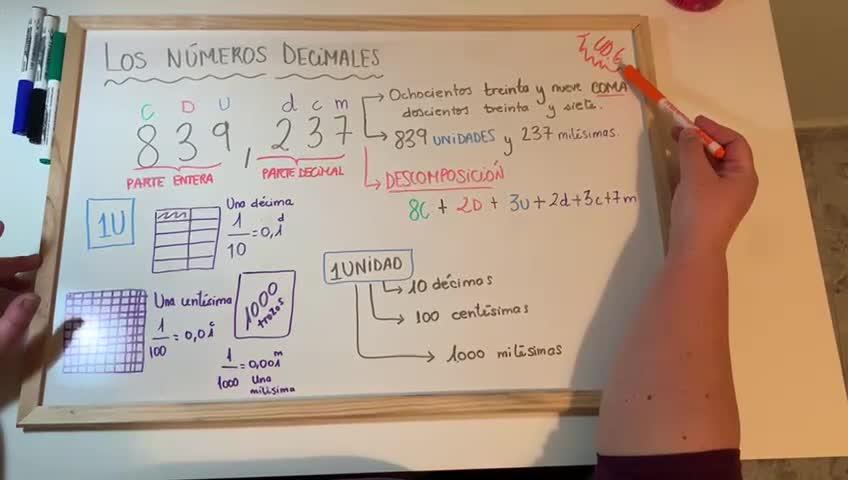 LOS NÚMEROS DECIMALES
C D U d c m
839,237
PARTE ENTERA
PARTE DECIMAL
Ochocientos treinta y nueve COMA
doscientos treinta y siete.
839 UNIDADES y 237 milésimas.
DESCOMPOSICIÓN
8C + 2D + 3U + 2d + 3c + 7m
1U
Una décima
1/10 = 0,1 d
Una centésima
1/100 = 0,01 c
1000
trozos
1/1000 = 0,001 m
Una
milésima
1 UNIDAD
10 décimas
100 centésimas
1000 milésimas